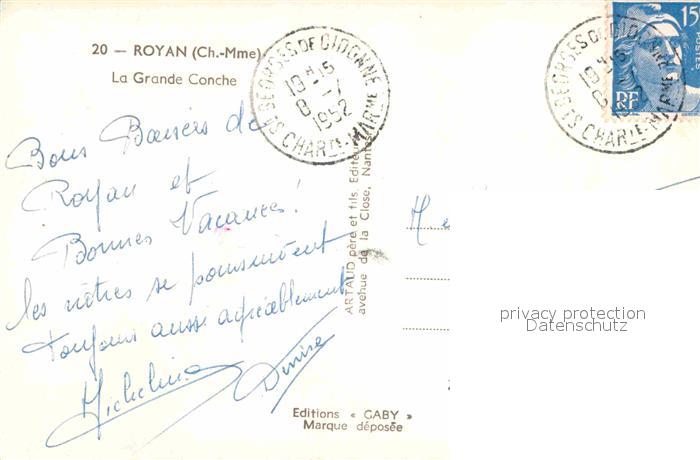 20 — ROYAN (Ch.-Mme)
La Grande Conche
Bons Baisers de
Royan et
Bonnes Vacances !
les nôtres se poursuivent
toujours aussi agréablement
Micheline Denise
Editions « GABY »
Marque déposée
ARTAUD père et fils, Editeurs
avenue de la Close, Nantes
ST GEORGES DE DIDONNE
19H15
8 - 7
1952
CHARTE-MARME
15F
POSTES
RF
ST GEORGES DE DIDONNE
19H15
8
CHARTE-MARME
privacy protection
Datenschutz